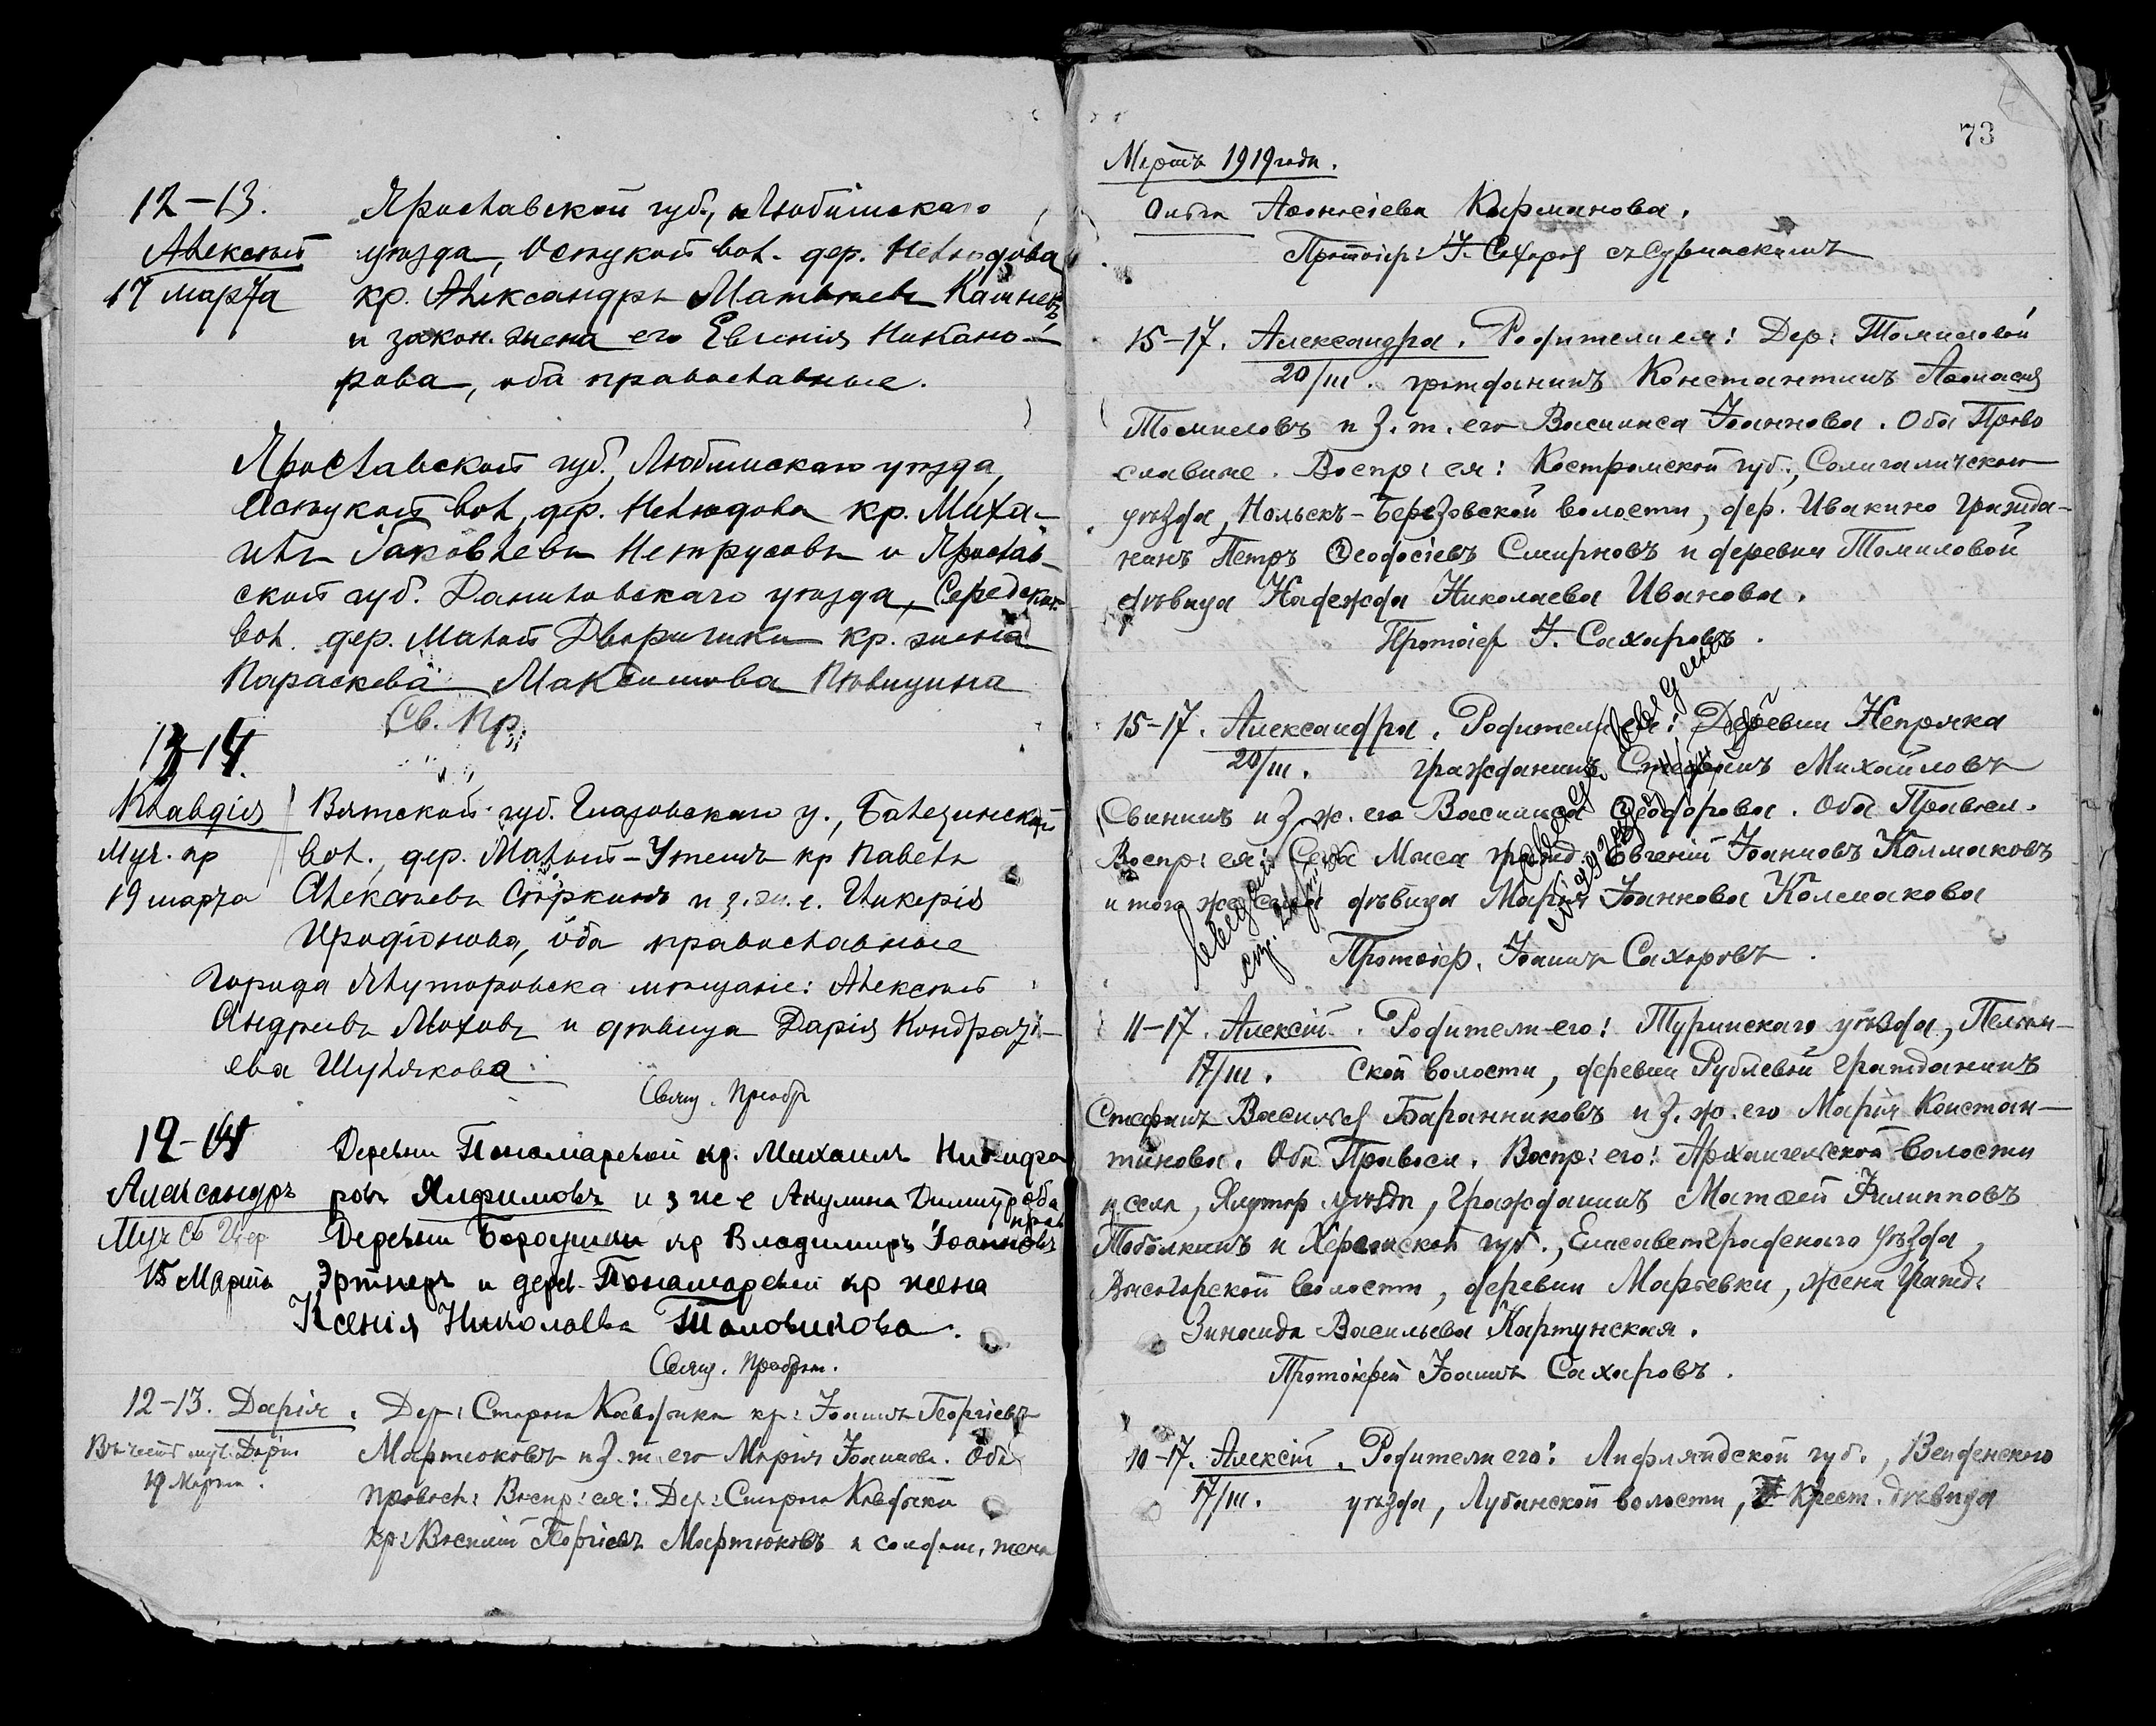 12-13. Ярославской губ., Любимскаго
Алексѣй уѣзда, Осѣцкой вол. дер. Нелюдова
17 марта кр. Александръ Матвѣевъ
и закон. жена его Евгенія Никано-
рова, оба православные.
Ярославской губ., Любимскаго уѣзда,
вол., дер. Нелюдова кр. Миха-
илъ Іаковлевъ и Ярослав-
ской губ. Даниловскаго уѣзда, Середской
вол. дер. Малой Дворишки кр. жена
Параскева Максимова Пѣвицына
Св. Пр.
13-14.
Клавдія Вятской губ. Глазовскаго у., Балезинской
муч. кр вол., дер. Малый-Утемъ кр Павелъ
19 марта Алексѣевъ и з. ж. е. Гликерія
Иродіонова, оба православные
Города Ялуторовска мѣщане: Алексѣй
Андреевъ Моховъ и дѣвица Дарія Кондрать-
ева Шулякова
Свящ. Преобр
12-14 Деревни Пономаревой кр. Михаилъ Никифо
Александръ ровъ Ялфимовъ и з же е Акулина Димитр оба
прав
Муч Св Деревни Бородиной кр Владимиръ Іоанновъ
15 Марта Эртнеръ и дерев. Понамаревой кр жена
Ксенія Николаева
Свящ. Преображ.
12-13. Дарія. Дер: Старой Кавдыка кр: Іоаннъ Георгіевъ
Въ честь муч. Даріи Мартюковъ и З. ж. его Марія Іоаннова. Оба
19 Марта. Правосл: Воспр: ея: Дер: Старой Кавдыка
кр: Василій Георгіевъ Мартюковъ и солдат. жена
73
Мартъ 1919 года.
Ольга Аѳанасіева Карманова.
Протоіер: І. Сахаров
15-17. Александра. Родители ея: Дер: Томиловой
20/III. гражданинъ Константинъ Аѳанасіев
Томиловъ и З. ж. его Васииса Іоаннова. Оба Право
славные. Воспр: ея: Костромской губ., Солигаличскаго
уѣзда, Нольскъ-Березовской волости, дер. Ивакино Гражда-
нинъ Петръ Ѳеодосіевъ Смирновъ и деревни Томиловой
дѣвица Надежда Николаева Иванова.
Протоіер І. Сахаровъ.
15-17. Александра. Родители ея: Деревни Непряка
20/III. гражданинъ Стефанъ Михайловъ
Свининъ и З. ж. его Васииса Ѳеодорова. Оба Правосл.
Воспр: ея: Села Мыса гражд. Евгеній Іоанновъ Колмаковъ
и того же села дѣвица Марія Іоаннова Колмакова
Протоіер. Іоаннъ Сахаровъ.
11-17. Алексій. Родители его: Туринскаго уѣзда, Пелым-
17/III. ской волости, деревни Рублевой Гражданинъ
Стефанъ Васильев Баранниковъ и З. ж. его Марія Констан-
тинова. Оба Правосл. Воспр: его: Архангельской волости
и села, Ялутор. уѣзда, Гражданинъ Матѳей Филипповъ
Тоболкинъ и Херсонской губ., Елисаветградскаго уѣзда,
Высогорской волости, деревни Марьевки, жена Гражд:
Зинаида Васильева Картунская.
Протоіерей Іоаннъ Сахаровъ.
10-17. Алексій. Родители его: Лифляндской губ., Венденскаго
17/III. уѣзда, Лубанской волости, Крест. дѣвица